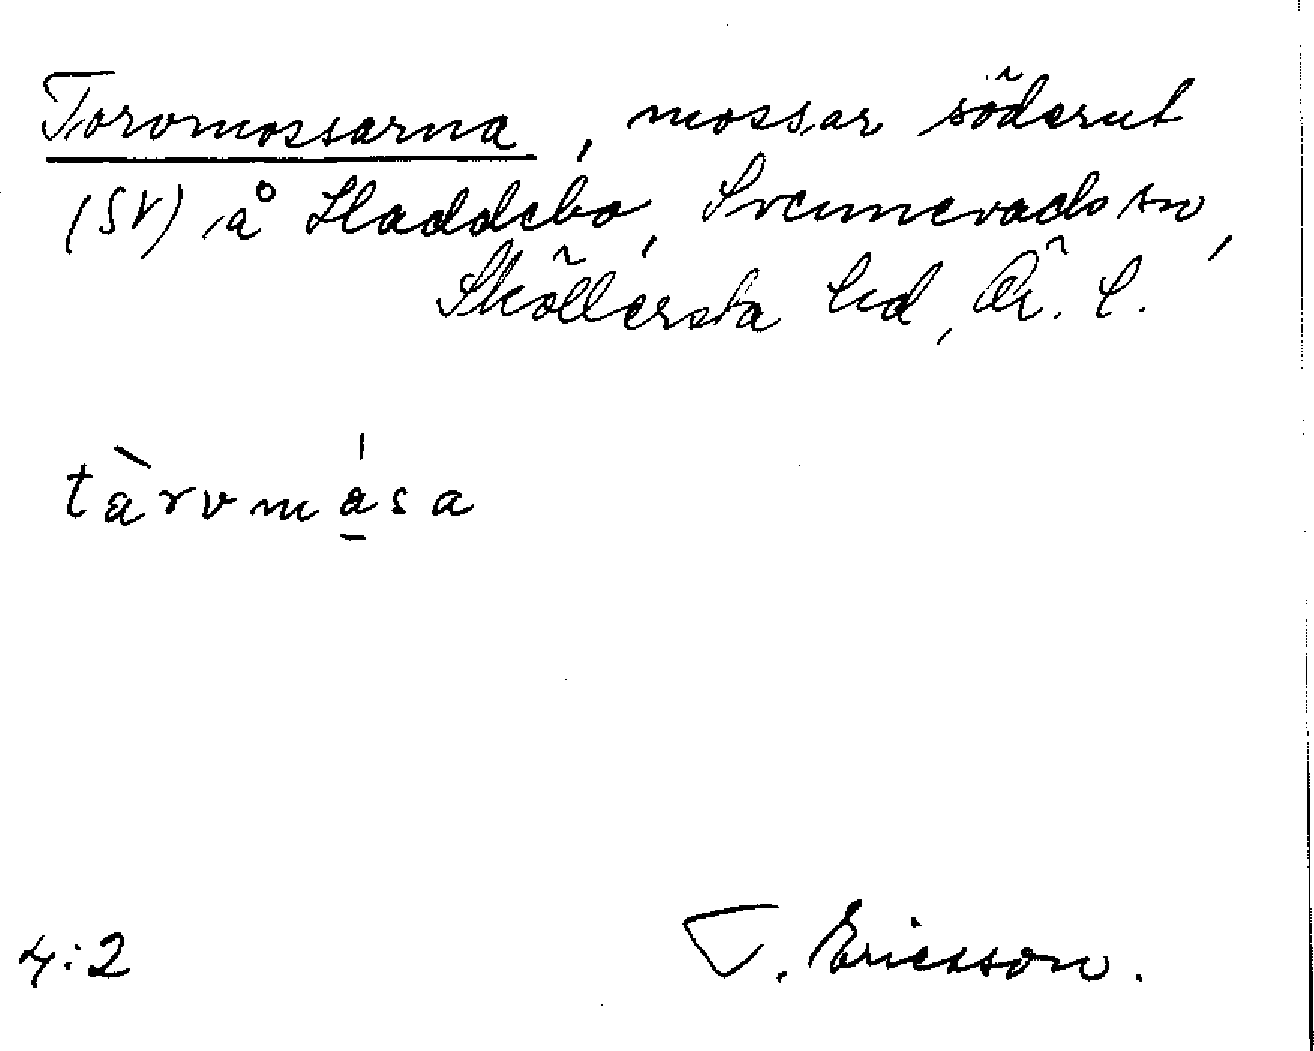 Torvmossarna, mossar söderut
(SV) å Haddebo, Svennevads sn,
Sköllersta hd, Ör. l.
tàrvmása
4:2 T. Ericsson.